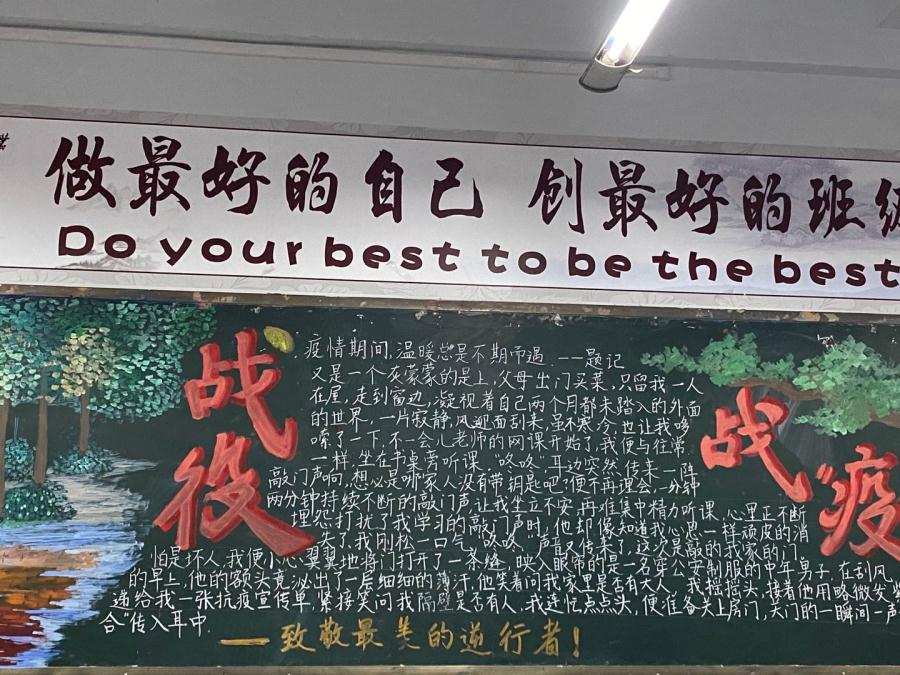 做最好的自己 创最好的班级
Do your best to be the best
战役
战“疫
疫情期间,温暖总是不期而遇.——题记
又是一个灰蒙蒙的早上,父母出门买菜,只留我一人
在屋,走到窗边,凝视着自己两个月都未踏入的外面
的世界,一片寂静,风迎面刮来,虽不寒冷,也让我哆
嗦了一下,不一会儿老师的网课开始了,我便与往常
一样,坐在书桌旁听课,“咚咚”耳边突然传来一阵
敲门声响,想必是哪家人没有带钥匙吧?便不再理会,一分钟
两分钟持续不断的敲门声,让我坐立不安,再难集中精力听课,心里正不断
埋怨打扰了我学习的敲门声时,他却像知道我心思一样顽皮的消
失了,我刚松一口气,“咚咚”声音又传来了,这次是敲的我家的门.
怕是坏人,我便小心翼翼地将门打开了一条缝,映入眼帘的是一名穿公安制服的中年男子,在刮风
的早上,他的额头竟泌出了一层细细的薄汗,他笑着问我家里是否有大人,我摇摇头,接着他用略微发
递给我一张抗疫宣传单,紧接笑问我隔壁是否有人,我连忙点点头,便准备关上房门,关门的一瞬间一声
合”传入耳中.
——致敬最美的逆行者!